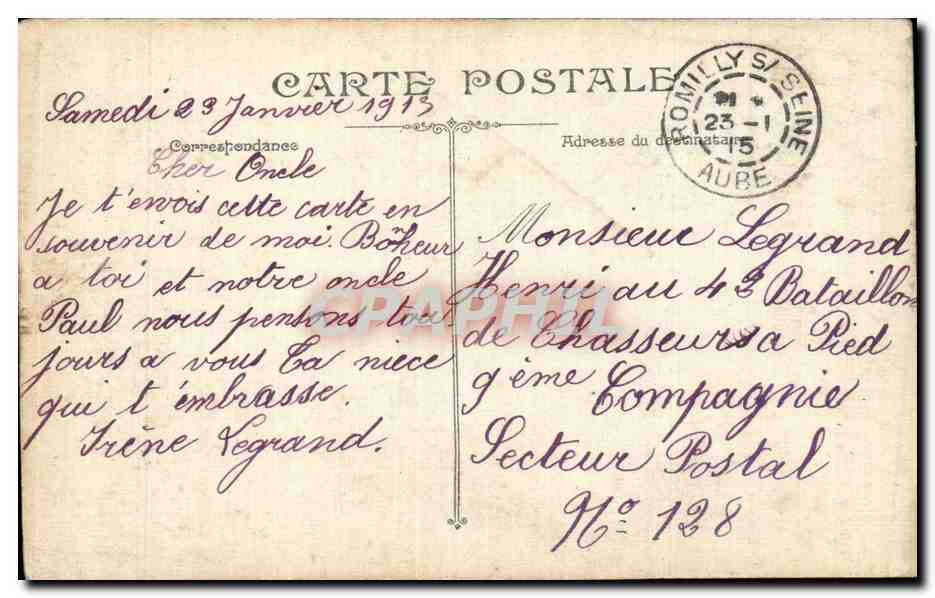 CARTE POSTALE
Samedi 23 Janvier 1915
Correspondance
Cher Oncle
Je t'envois cette carte en
souvenir de moi. Bonheur
a toi et notre oncle
Paul nous pensons tou
jours a vous Ta niece
qui t'émbrasse.
Irène Legrand.
Adresse du destinataire
ROMILLY S/ SEINE
23 - 1
15
AUBE
Monsieur Legrand
Henri au 4e Bataillon
de Chasseurs a Pied
9ème Compagnie
Secteur Postal
No 128
CPAPHIL